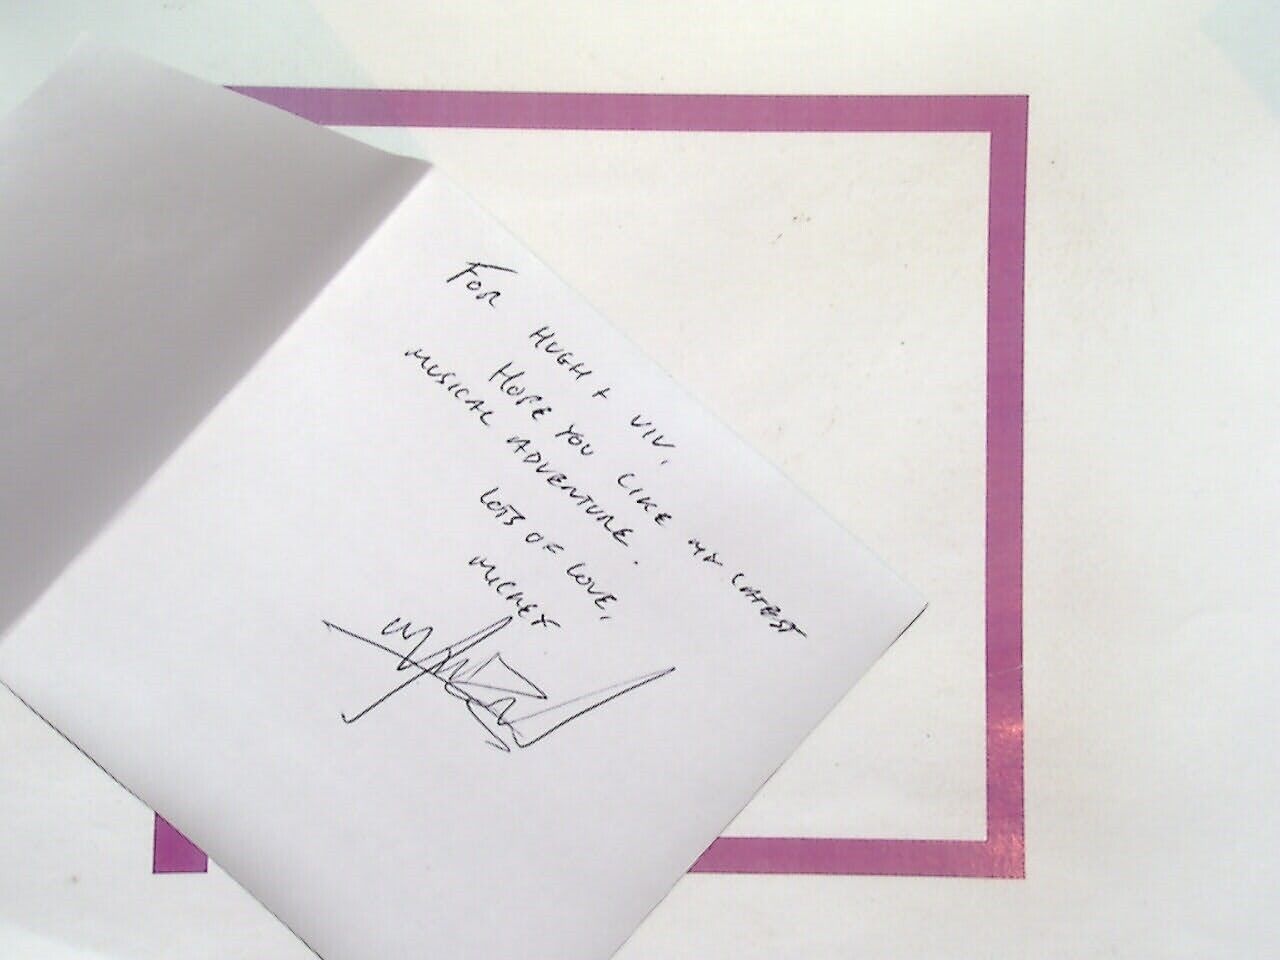 FOR HUGH + VIV,
HOPE YOU LIKE MY LATEST
MUSICAL ADVENTURE.
LOTS OF LOVE,
MICKEY